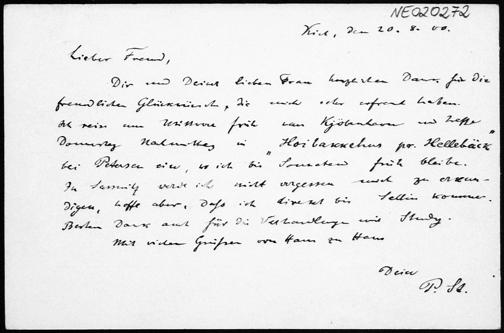 NE020272
Kiel, den 20. 8. 00.
Lieber Freund,
Dir und Deiner lieben Frau herzlichen Dank für die
freundlichen Glückwünsche, die mich sehr erfreut haben.
Ich reise am Mittwoch früh nach Kjöbenhavn und treffe
Donnerstag Nachmittag in "Hoibakkehus pr. Hellebäck"
bei Petersen ein, wo ich bis Sonnabend früh bleibe.
In Sassnitz werde ich nicht vergessen mich zu erkun-
digen, hoffe aber, daß ich direkt bis Sellin komme.
Besten Dank auch für die Verhandlungen mit Study.
Mit vielen Grüßen von Haus zu Haus
Dein
P. St.